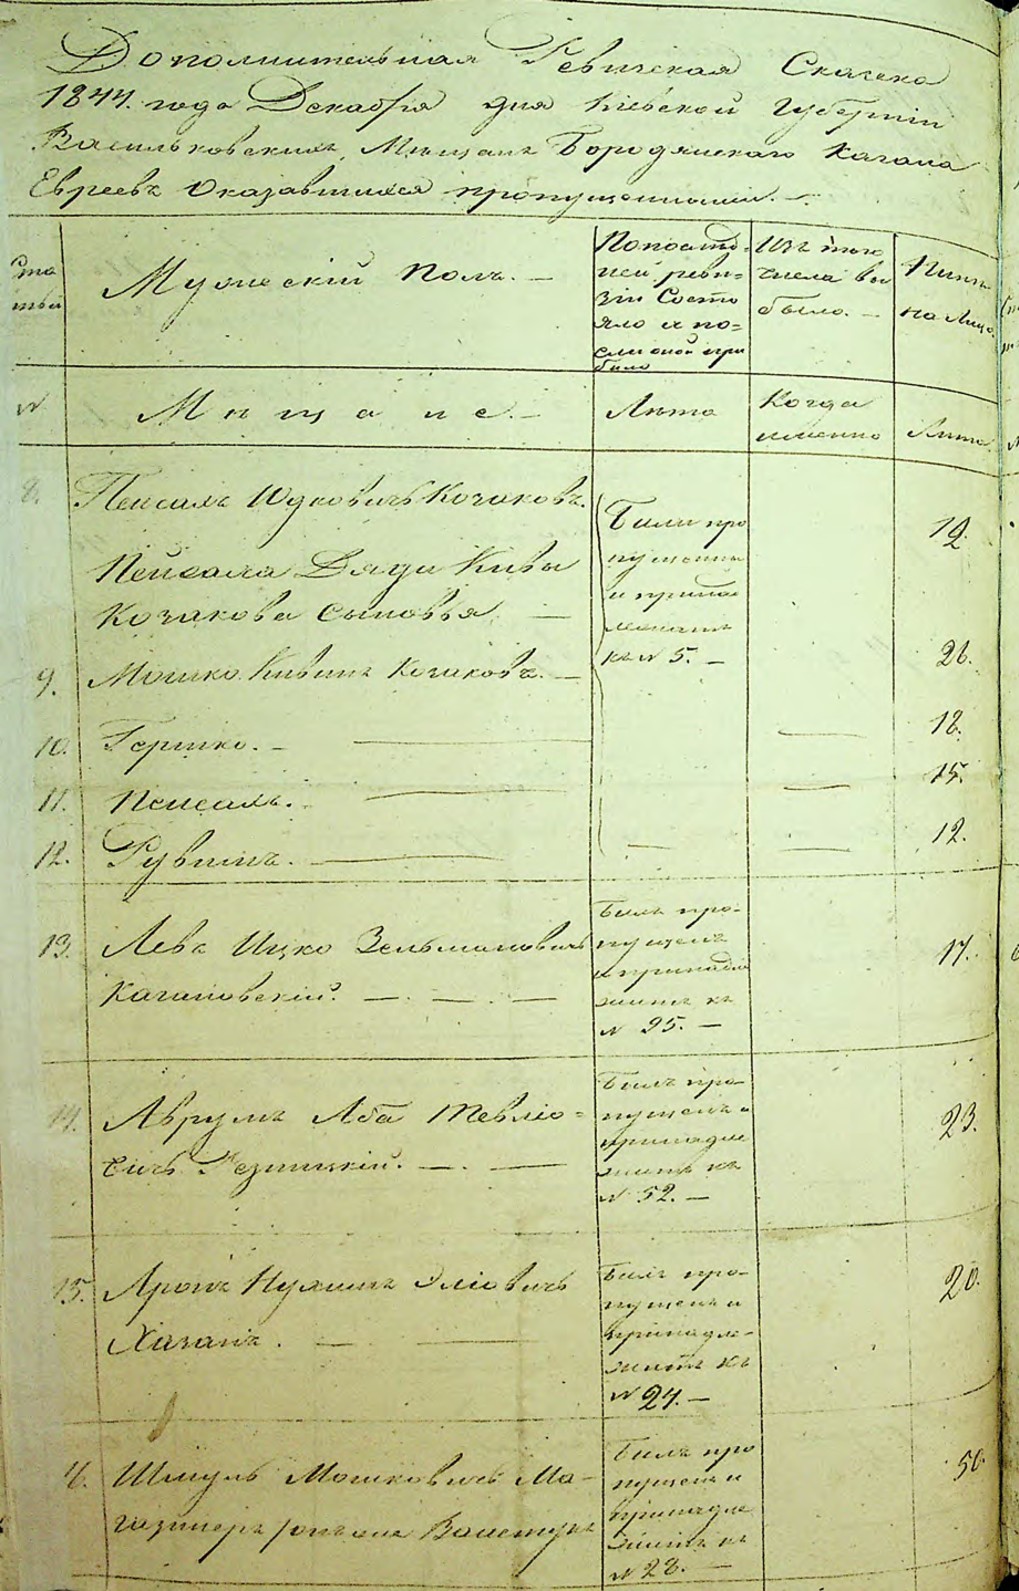 Дополнительная Ревизская Сказка
1844 года Декабря дня Кіевской Губерніи
Васильковскихъ Мѣщанъ Бородянскаго Кагала
Евреевъ Оказавшихся пропущенными. —
Мужескій полъ. —
По послѣд-
ней реви-
зіи Состо
яло и по-
сле оной при
было
Изъ того
числа вы
было. —
Нынѣ
на Лицо
№
Мѣщане. —
Лѣта
Когда
именно
Лѣта
8. Пейсахъ Юдковичъ Козаковъ.
Были про
пущены
и принад
лежатъ
къ № 5. —
19.
Пейсаха Дяди Кивы
Козакова Сыновья —
9. Мошко Кивинъ Козаковъ. —
26.
10. Гершко. —
18.
11. Пейсахъ.
15.
12. Рувинъ. —
12.
13. Лейба Ицко Зельмановичъ
Кагановскій. — . — . —
Былъ про-
пущенъ
и принадле
житъ къ
№ 95. —
17.
14. Аврумъ Аба Тевліо-
вичъ Резницкій. — . —
Былъ про-
пущенъ и
принадле
житъ къ
№ 52. —
23.
15. Аронъ Нухимъ Эліовичъ
Хазанъ. — —
Былъ про-
пущенъ и
принадле-
житъ къ
№ 24. —
20.
Шмуль Мошковичъ Ма-
газинеръ
Былъ про
пущенъ и
принадле
житъ къ
№ 28. —
50.